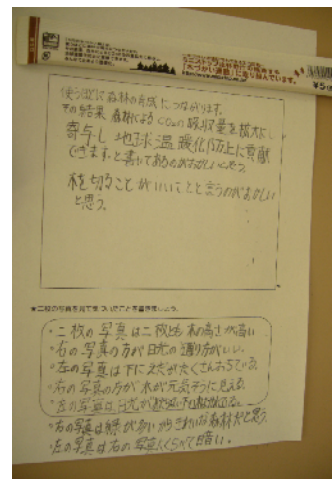 「木づかい運動」に取り組んでいます。
使うほどに森林の育成につながります。
その結果 森林によるCO₂の吸収量を拡大し
寄与し 地球温暖化防止に貢献
できます。と書いてあるのがおかしいと思う。
木を切ることがいいことと言うのがおかしい
と思う。
★二枚の写真を見て気づいたことを書きましょう。
・二枚の写真は二枚とも木の高さが高い
・右の写真の方が日光の通り方がいい。
・左の写真は下にえだがたくさんおちている。
・右の写真の方が木が元気そうに見える。
・左の写真は日光が
・右の写真は緑が多いからきれいな森林だと思う。
・左の写真は右の写真とくらべて暗い。